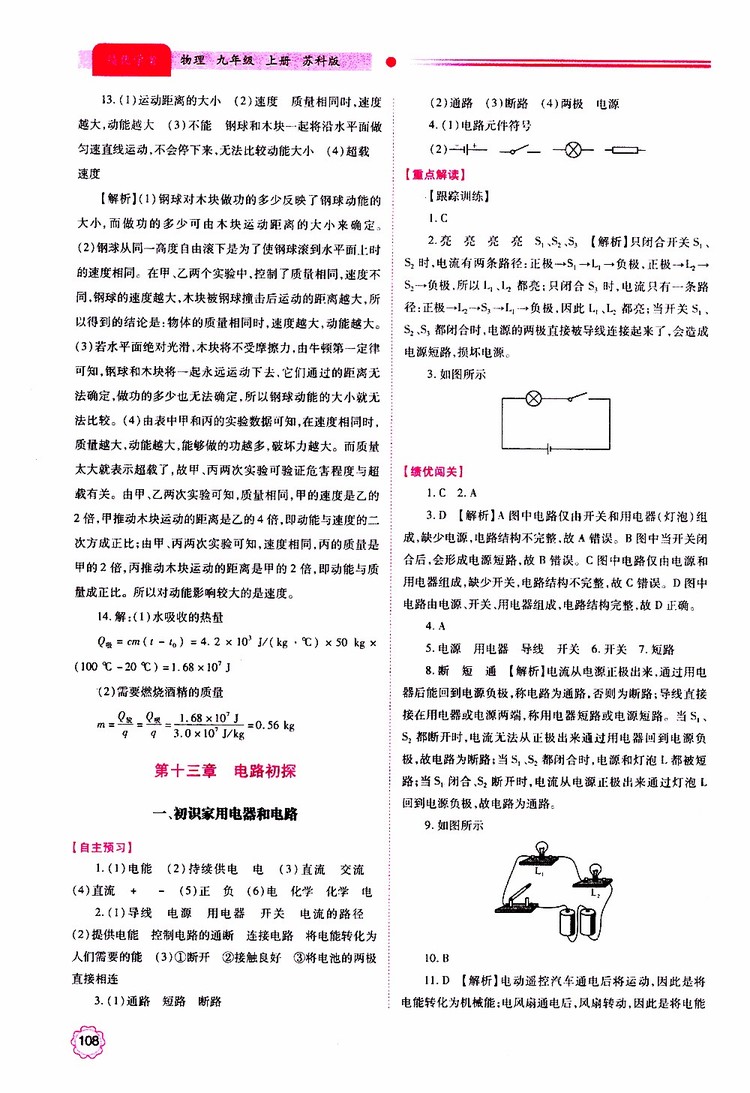 物理 九年级 上册 苏科版
13.(1)运动距离的大小 (2)速度 质量相同时,速度
越大,动能越大 (3)不能 钢球和木块一起将沿水平面做
匀速直线运动,不会停下来,无法比较动能大小 (4)超载
速度
【解析】(1)钢球对木块做功的多少反映了钢球动能的
大小,而做功的多少可由木块运动距离的大小来确定。
(2)钢球从同一高度自由滚下是为了使钢球滚到水平面上时
的速度相同。在甲、乙两个实验中,控制了质量相同,速度不
同,钢球的速度越大,木块被钢球撞击后运动的距离越大,所
以得到的结论是:物体的质量相同时,速度越大,动能越大。
(3)若水平面绝对光滑,木块将不受摩擦力,由牛顿第一定律
可知,钢球和木块将一起永远运动下去,它们通过的距离无
法确定,做功的多少也无法确定,所以钢球动能的大小就无
法比较。(4)由表中甲和丙的实验数据可知,在速度相同时,
质量越大,动能越大,能够做的功越多,破坏力越大。而质量
太大就表示超载了,故甲、丙两次实验可验证危害程度与超
载有关。由甲、乙两次实验可知,质量相同,甲的速度是乙的
2 倍,甲推动木块运动的距离是乙的 4 倍,即动能与速度的二
次方成正比;由甲、丙两次实验可知,速度相同,丙的质量是
甲的 2 倍,丙推动木块运动的距离是甲的 2 倍,即动能与质
量成正比。所以对动能影响较大的是速度。
14.解:(1)水吸收的热量
Q吸 = cm(t - t₀) = 4.2 × 10³ J/(kg · ℃) × 50 kg ×
(100 ℃ - 20 ℃) = 1.68 × 10⁷ J
(2)需要燃烧酒精的质量
m = Q放/q = Q吸/q = 1.68 × 10⁷ J/3.0 × 10⁷ J/kg = 0.56 kg
第十三章 电路初探
一、初识家用电器和电路
【自主预习】
1.(1)电能 (2)持续供电 电 (3)直流 交流
(4)直流 + - (5)正 负 (6)电 化学 化学 电
2.(1)导线 电源 用电器 开关 电流的路径
(2)提供电能 控制电路的通断 连接电路 将电能转化为
人们需要的能 (3)①断开 ②接触良好 ③将电池的两极
直接相连
3.(1)通路 短路 断路
108
(2)通路 (3)断路 (4)两极 电源
4.(1)电路元件符号
(2)
【重点解读】
【跟踪训练】
1.C
2.亮 亮 亮 亮 S₁、S₂、S₃ 【解析】只闭合开关 S₁、
S₂ 时,电流有两条路径:正极→S₁→L₁→负极,正极→L₂→
S₂→负极,所以 L₁、L₂ 都亮;只闭合 S₃ 时,电流只有一条路
径:正极→L₂→S₃→L₁→负极,因此 L₁、L₂ 都亮;当开关 S₁、
S₂、S₃ 都闭合时,电源的两极直接被导线连接起来了,会造成
电源短路,损坏电源。
3.如图所示
【绩优闯关】
1.C 2.A
3.D 【解析】A 图中电路仅由开关和用电器(灯泡)组
成,缺少电源,电路结构不完整,故 A 错误。B 图中当开关闭
合后,会形成电源短路,故 B 错误。C 图中电路仅由电源和
用电器组成,缺少开关,电路结构不完整,故 C 错误。D 图中
电路由电源、开关、用电器组成,电路结构完整,故 D 正确。
4.A
5.电源 用电器 导线 开关 6.开关 7.短路
8.断 短 通 【解析】电流从电源正极出来,通过用电
器后能回到电源负极,称电路为通路,否则为断路;导线直接
接在用电器或电源两端,称用电器短路或电源短路。当 S₁、
S₂ 都断开时,电流无法从正极出来通过用电器回到电源负
极,故电路为断路;当 S₁、S₂ 都闭合时,电源和灯泡 L 都被短
路;当 S₁ 闭合、S₂ 断开时,电流从电源正极出来通过灯泡 L
回到电源负极,故电路为通路。
9.如图所示
L₁
L₂
10.B
11.D 【解析】电动遥控汽车通电后将运动,因此是将
电能转化为机械能;电风扇通电后,风扇转动,因此是将电能